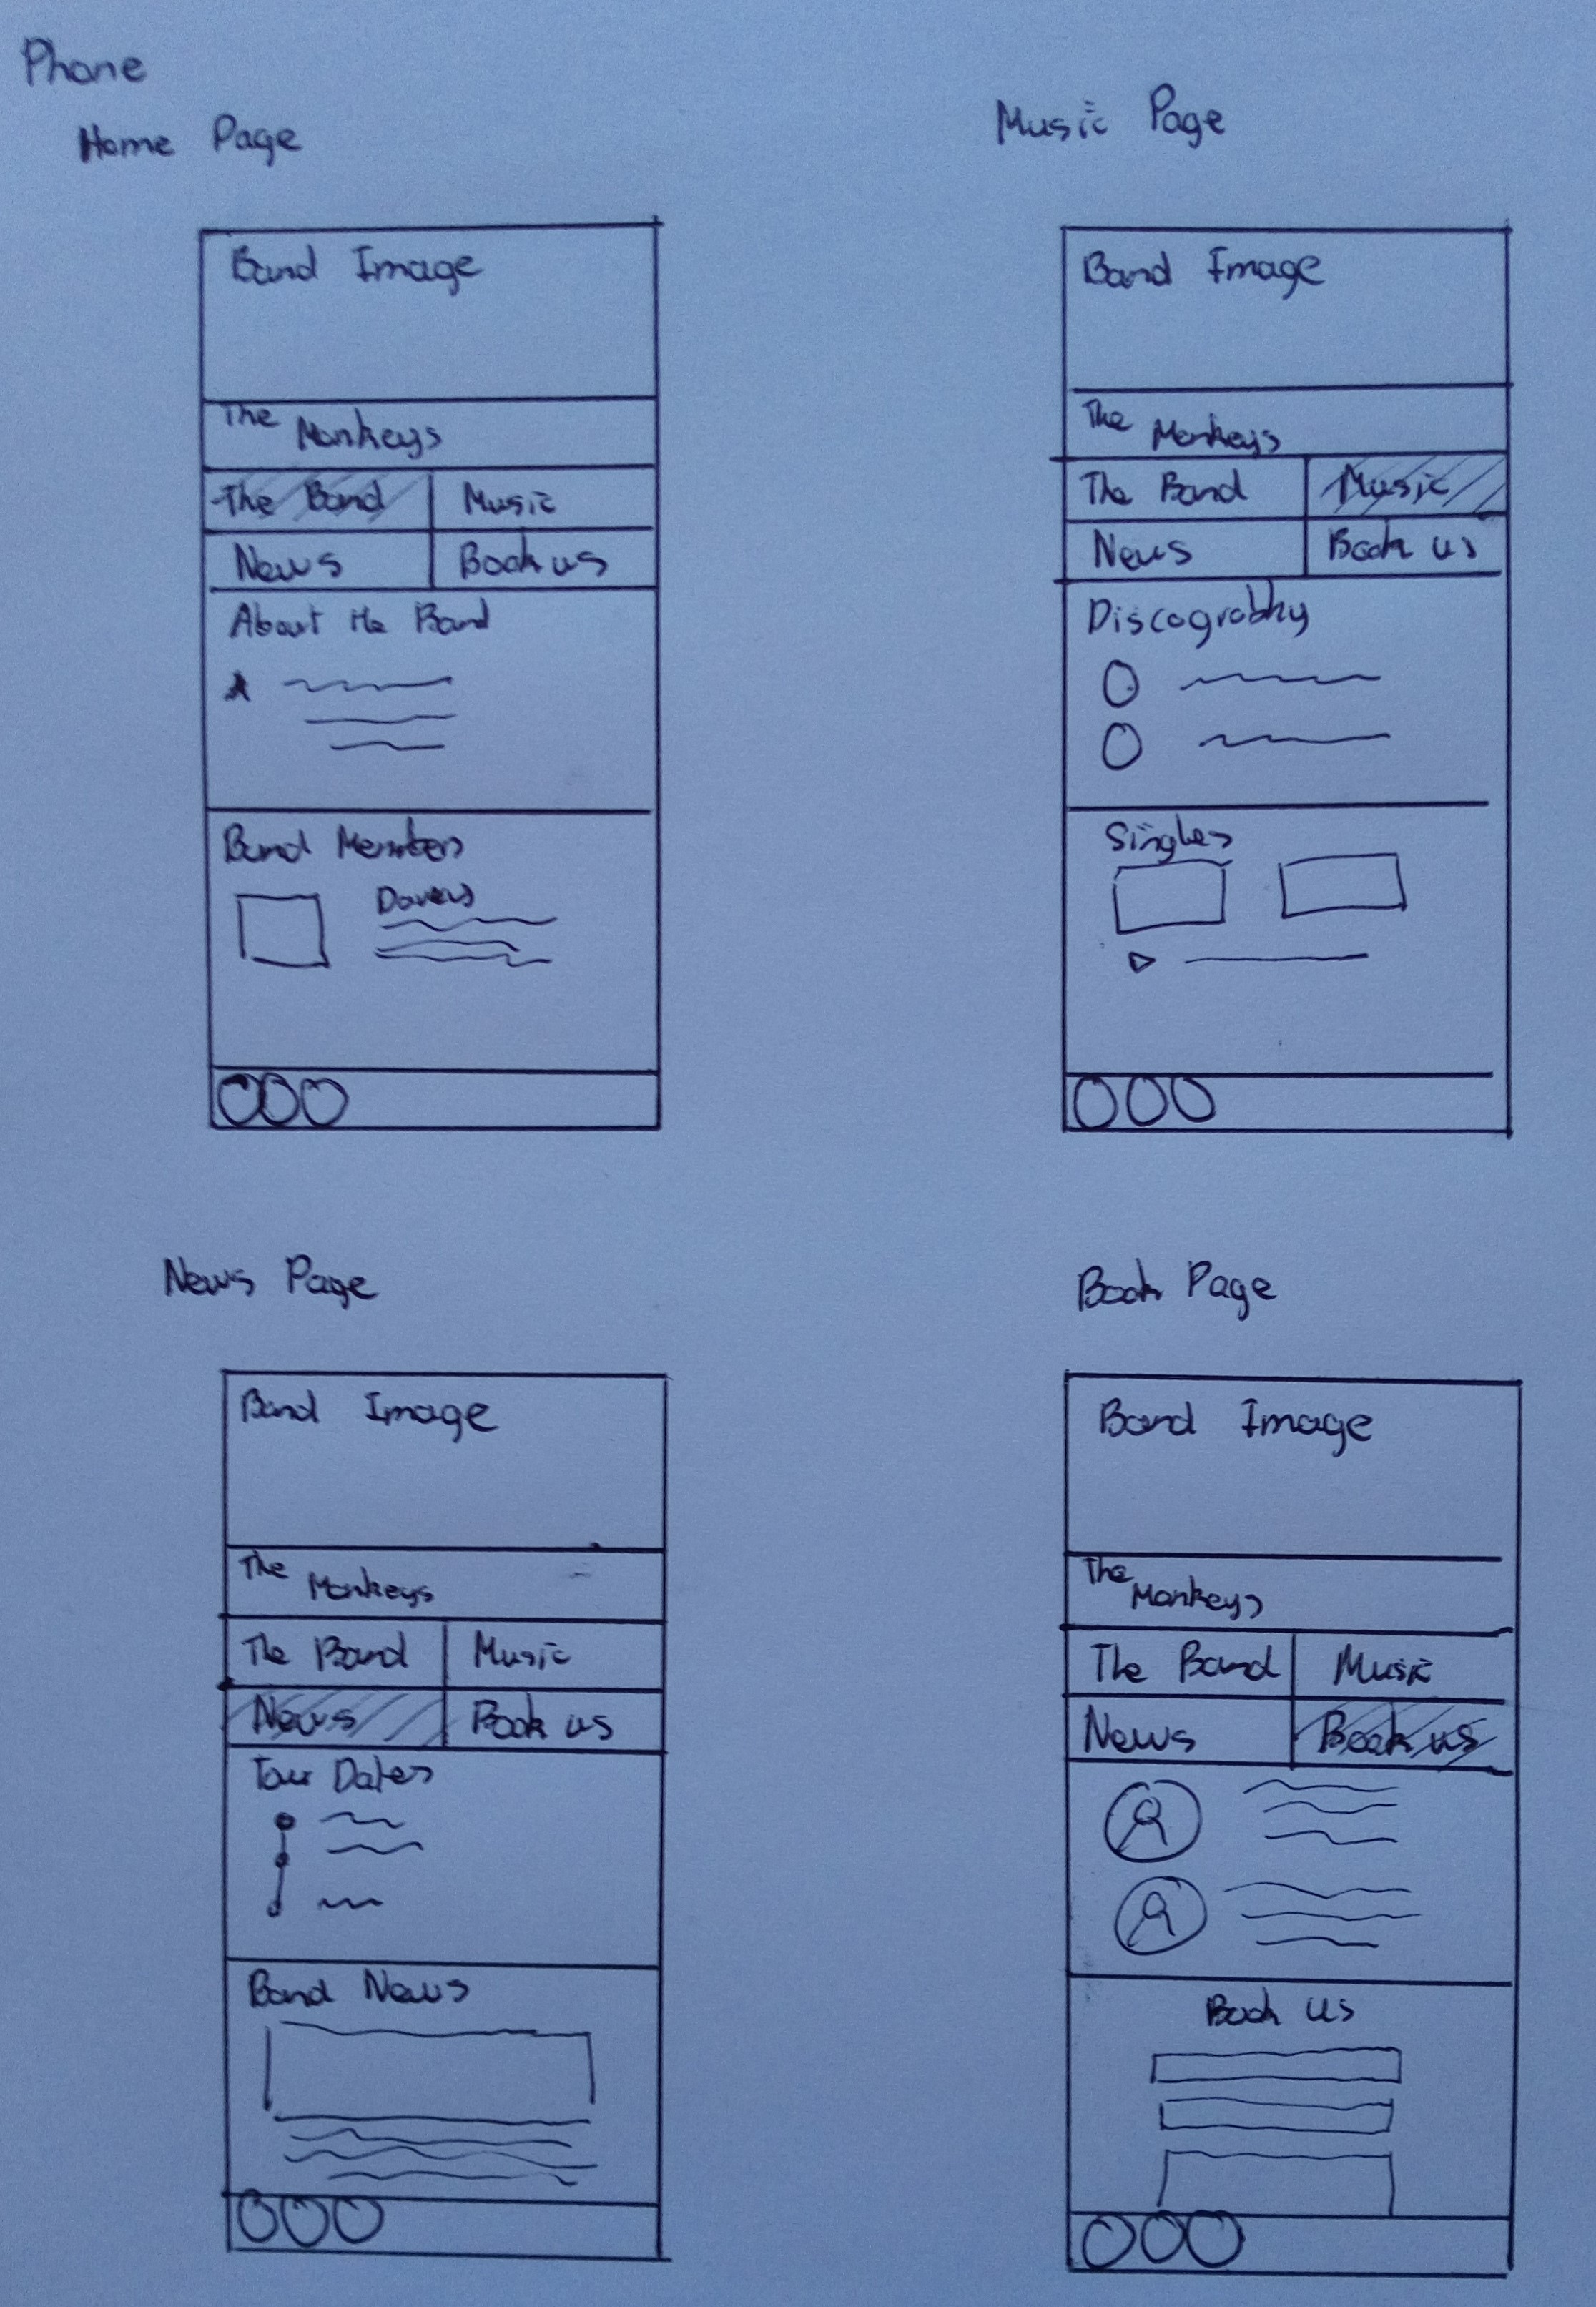 Phone
Home Page
Band Image
The Monkeys
The Band Music
News Book us
About the Band
Band Members
Music Page
Band Image
The Monkeys
The Band Music
News Book us
Discography
Singles
News Page
Band Image
The Monkeys
The Band Music
News Book us
Tour Dates
Band News
Book Page
Band Image
The Monkeys
The Band Music
News Book us
Book us